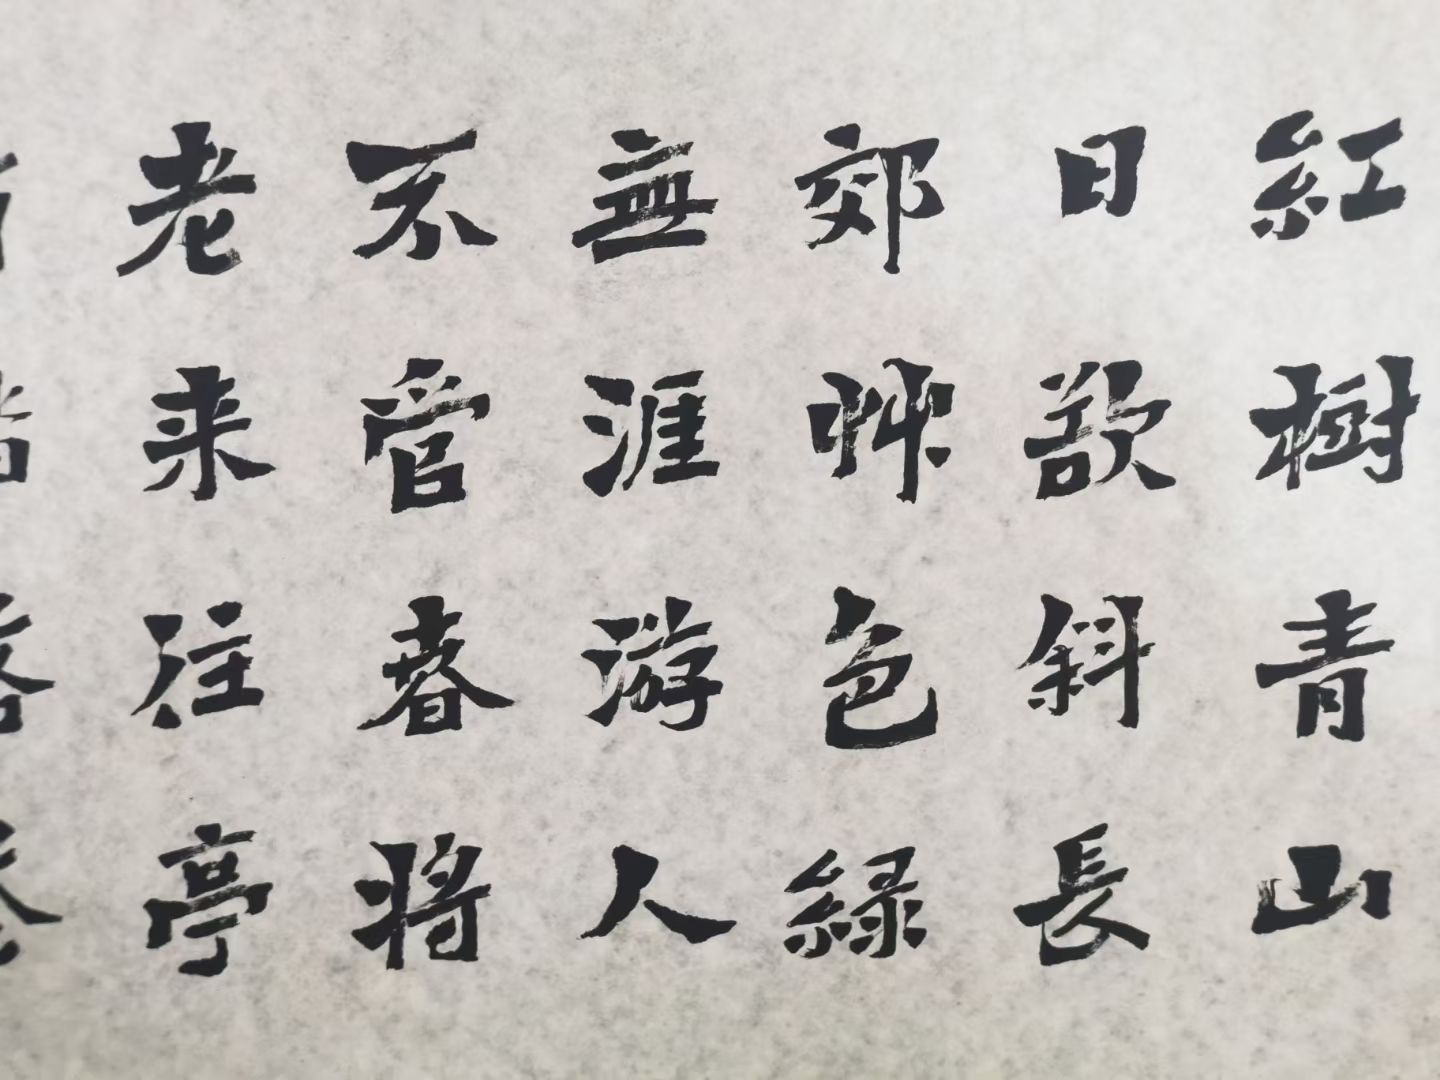 紅樹青山
日欲斜長
郊艸色綠
無涯游人
不管春將
老来往亭